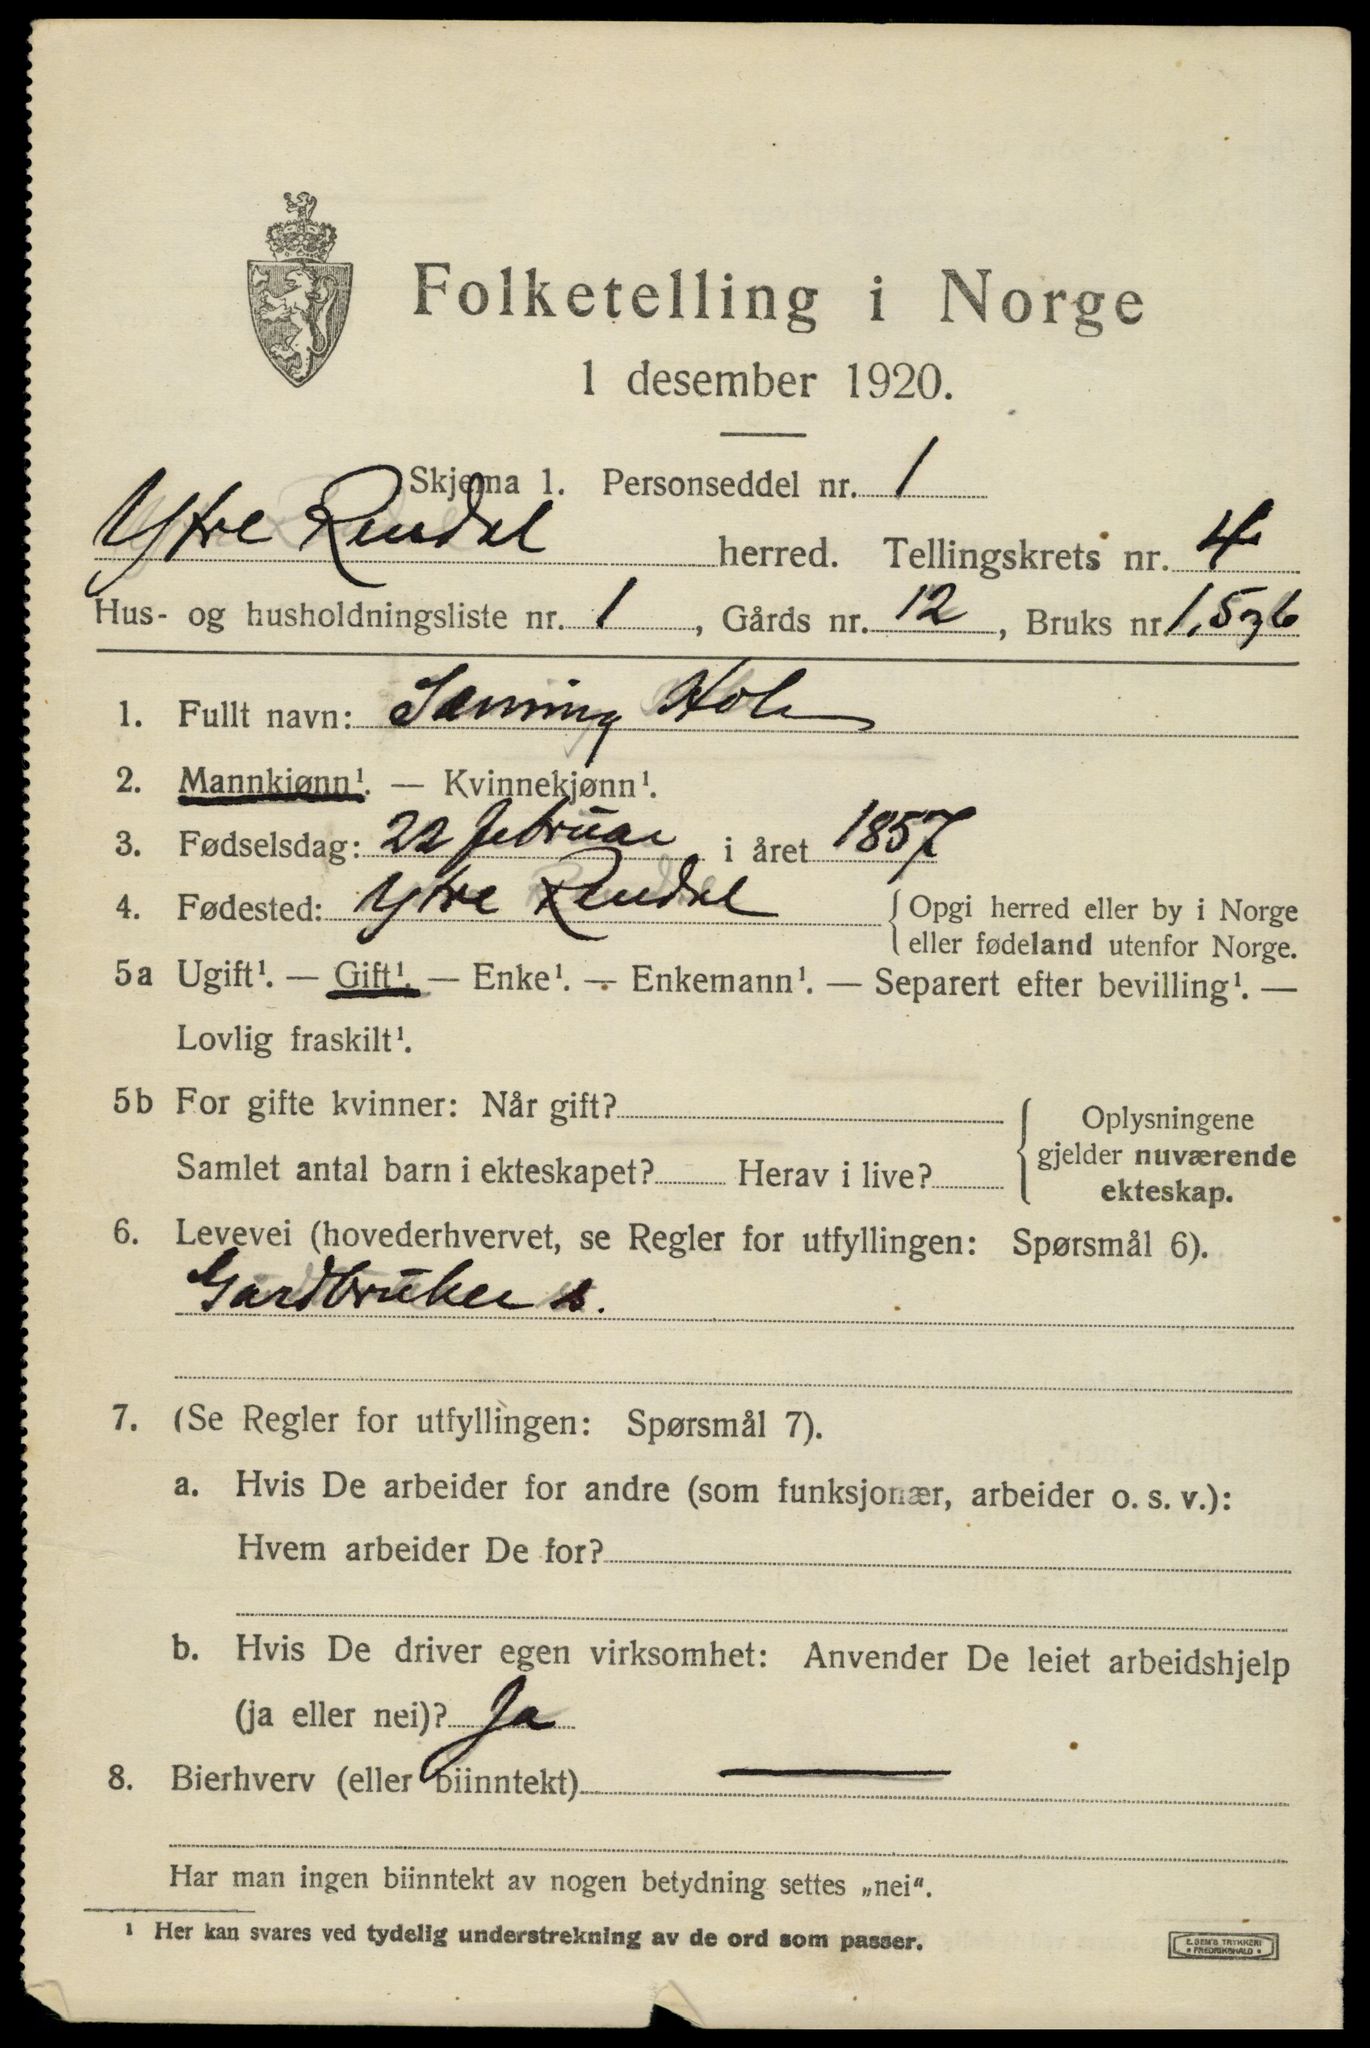 Folketelling i Norge
1 desember 1920.
Skjema 1. Personseddel nr. 1
Ytre Rendal herred. Tellingskrets nr. 4
Hus- og husholdningsliste nr. 1, Gårds nr. 12, Bruks nr. 1, 5 og 6
1. Fullt navn: Sæming Hole
2. Mannkjønn¹. — Kvinnekjønn¹.
3. Fødselsdag: 22 februar i året 1857
4. Fødested: Ytre Rendal {Opgi herred eller by i Norge
eller fødeland utenfor Norge.
5a Ugift¹. — Gift¹. — Enke¹. — Enkemann¹. — Separert efter bevilling¹. —
Lovlig fraskilt¹.
5b For gifte kvinner: Når gift?
Samlet antal barn i ekteskapet? Herav i live?
Oplysningene
gjelder nuværende
ekteskap.
6. Levevei (hovederhvervet, se Regler for utfyllingen: Spørsmål 6).
Gårdbruker s.
7. (Se Regler for utfyllingen: Spørsmål 7).
a. Hvis De arbeider for andre (som funksjonær, arbeider o. s. v.):
Hvem arbeider De for?
b. Hvis De driver egen virksomhet: Anvender De leiet arbeidshjelp
(ja eller nei)? Ja
8. Bierhverv (eller biinntekt) —
Har man ingen biinntekt av nogen betydning settes „nei“.
¹ Her kan svares ved tydelig understrekning av de ord som passer.
E. SEM'S TRYKKERI
• FREDRIKSHALD •